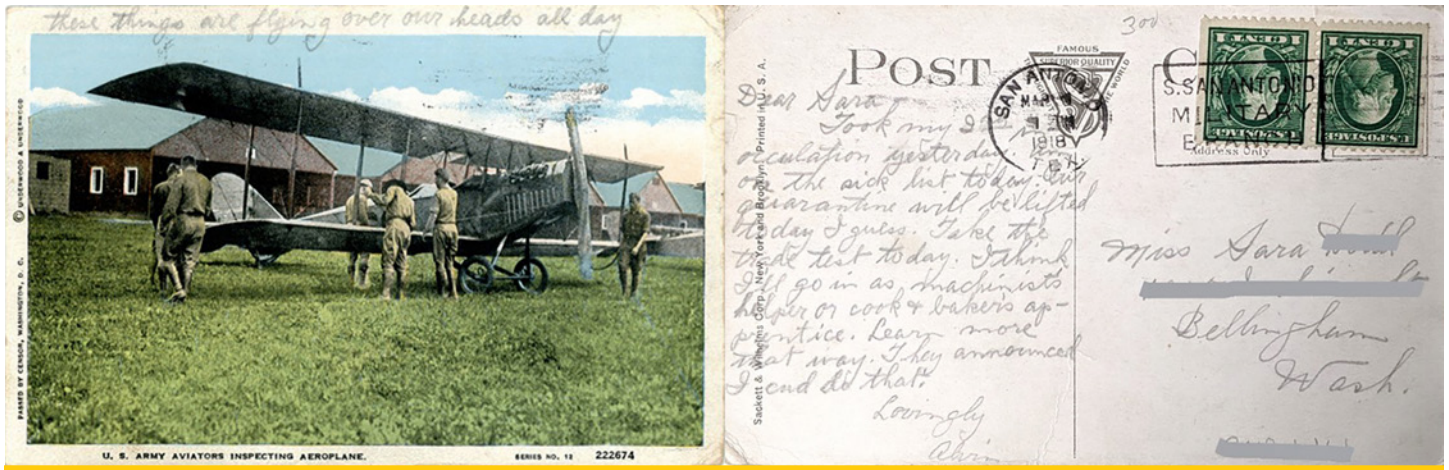 these things are flying over our heads all day
PASSED BY CENSOR, WASHINGTON, D. C. © UNDERWOOD & UNDERWOOD
U. S. ARMY AVIATORS INSPECTING AEROPLANE.
SERIES NO. 12 222674
300
POST
FAMOUS
SUPERIOR QUALITY
THE WORLD
SAN ANTONIO
MAR
1918
TEX.
S. SAN ANTONIO
MILITARY
1 CENT 1
U.S. POSTAGE
1 CENT 1
U.S. POSTAGE
Address Only
Sackett & Wilhelms Corp., New York and Brooklyn. Printed in U. S. A.
Dear Sara
Took my
oculation yesterday
on the sick list today. Our
quarantine will be lifted
today I guess. Take the
trade test today. I think
I'll go in as machinist's
helper or cook & baker's ap-
prentice. Learn more
that way. They announced
I cud do that.
Lovingly
Alvin
Miss Sara
Bellingham
Wash.